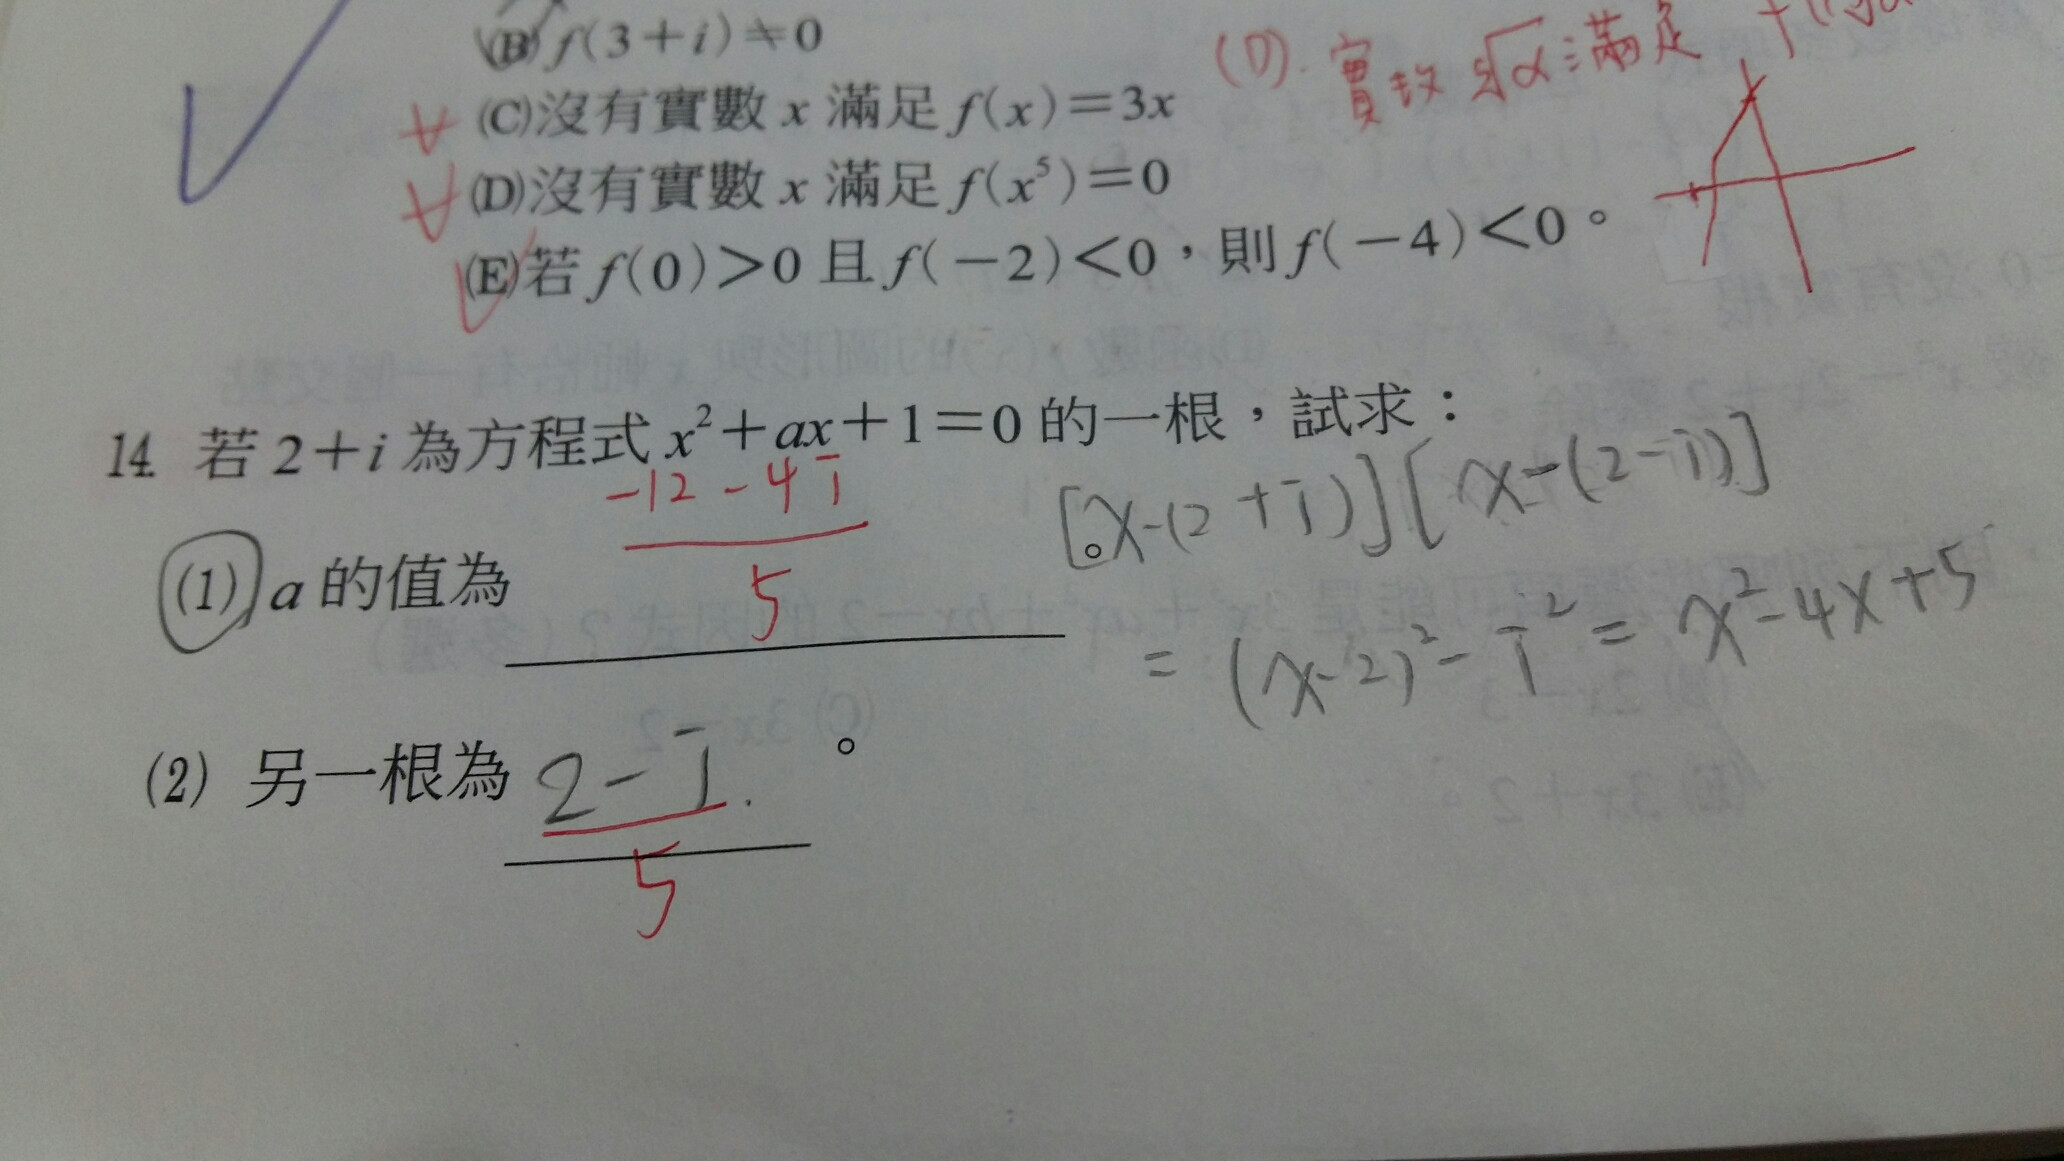 (B) f(3+i)≠0
(C)沒有實數 x 滿足 f(x)=3x
(D). 實數 ⁵√α 滿足
(D)沒有實數 x 滿足 f(x⁵)=0
(E)若 f(0)>0 且 f(-2)<0,則 f(-4)<0。
14. 若 2+i 為方程式 x²+ax+1=0 的一根,試求:
[x-(2+i)][x-(2-i)]
= (x-2)²-i² = x²-4x+5
(1) a 的值為 -12-4i / 5 。
(2) 另一根為 2-i / 5 。